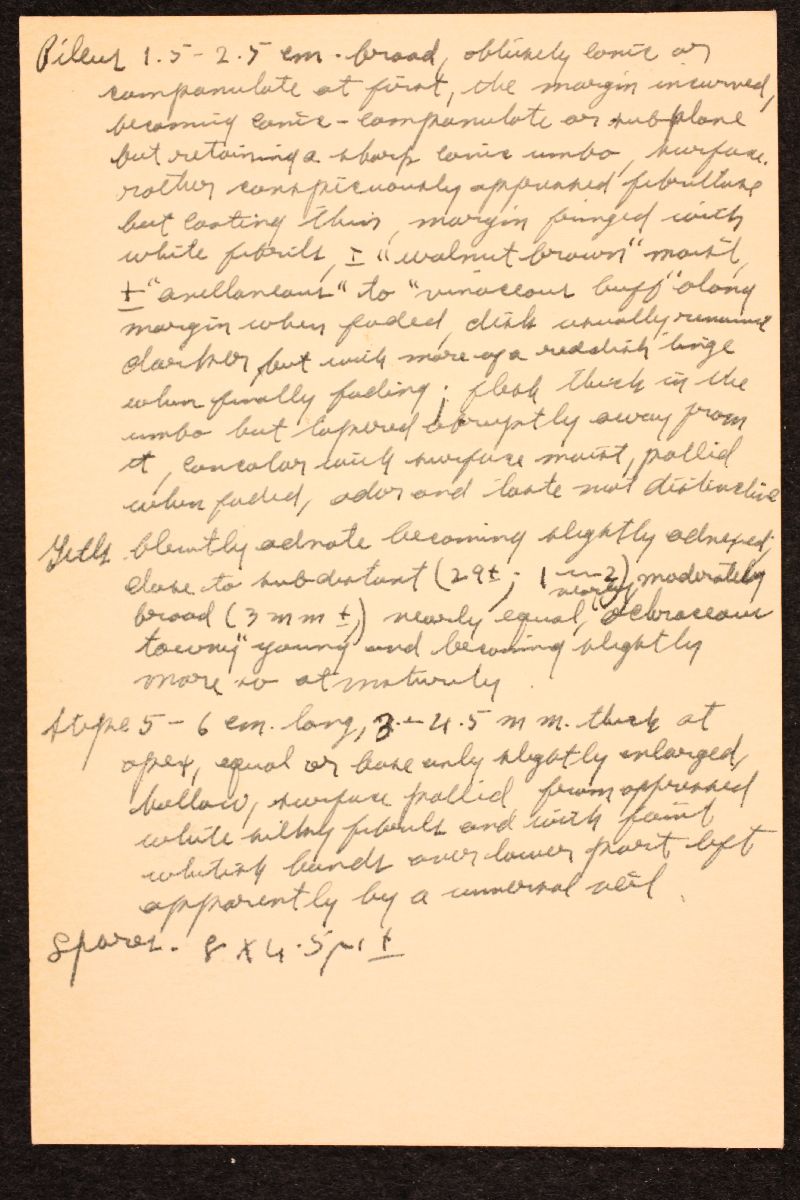 Pileus 1.5 - 2.5 cm. broad, obtusely conic or
campanulate at first, the margin incurved,
becoming conic-campanulate or subplane
but retaining a sharp conic umbo, surface
rather conspicuously appressed fibrillose
but coating thin, margin fringed with
white fibrils, ± "walnut brown" moist,
± "avellaneous" to "vinaceous buff" along
margin when faded, disk usually remains
darker, but with more of a reddish tinge
when finally fading; flesh thick in the
umbo but tapered abruptly away from
it, concolor with surface moist, pallid
when faded, odor and taste not distinctive
Gills bluntly adnate becoming slightly adnexed,
close to subdistant (29±; 1-2), moderately
nearly
broad (3 mm ±,) nearly equal, "ochraceous
tawny" young and becoming slightly
more so at maturity.
Stipe 5 - 6 cm. long, 3.-4.5 mm. thick at
apex, equal or base only slightly enlarged,
hollow, surface pallid from appressed
white silky fibrils and with faint
whitish bands over lower part left
apparently by a universal veil.
Spores. 8 X 4.5 µ ±